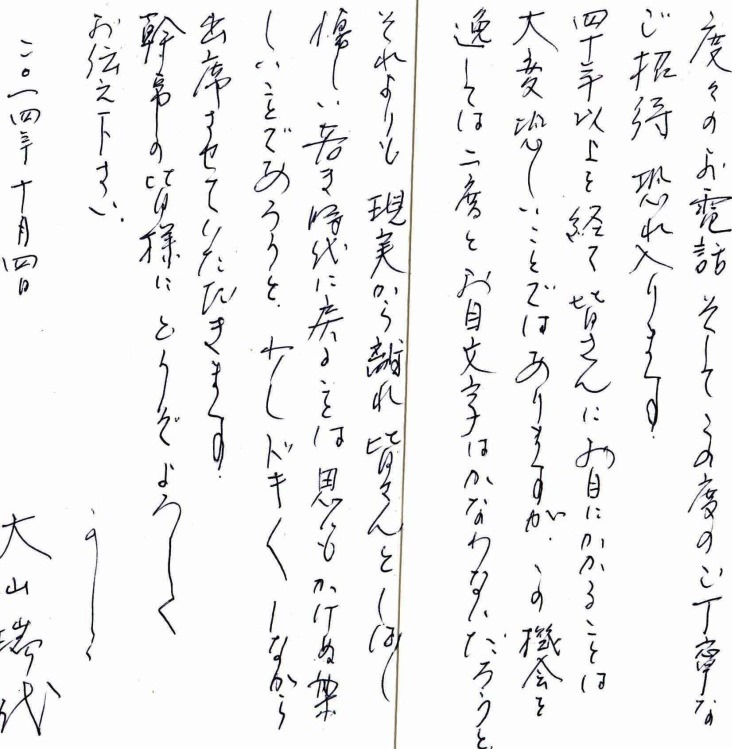 度々のお電話 そしてこの度のご丁寧な
ご招待 恐れ入ります。
四十年以上を経て 皆さんにお目にかかることは
大変恐しいことではありますが、この機会を
逸しては二度とお目文字はかなわないだろうと、
それよりも 現実から離れ 皆さんとしばし
懐しい若き時代に戻ることは思いもかけぬ楽
しいことであろうと、少しドキドキしながら
出席させていただきます。
幹事の皆様にどうぞよろしく
お伝え下さい。
かしこ
二〇一四年十月四日
大山瑞代